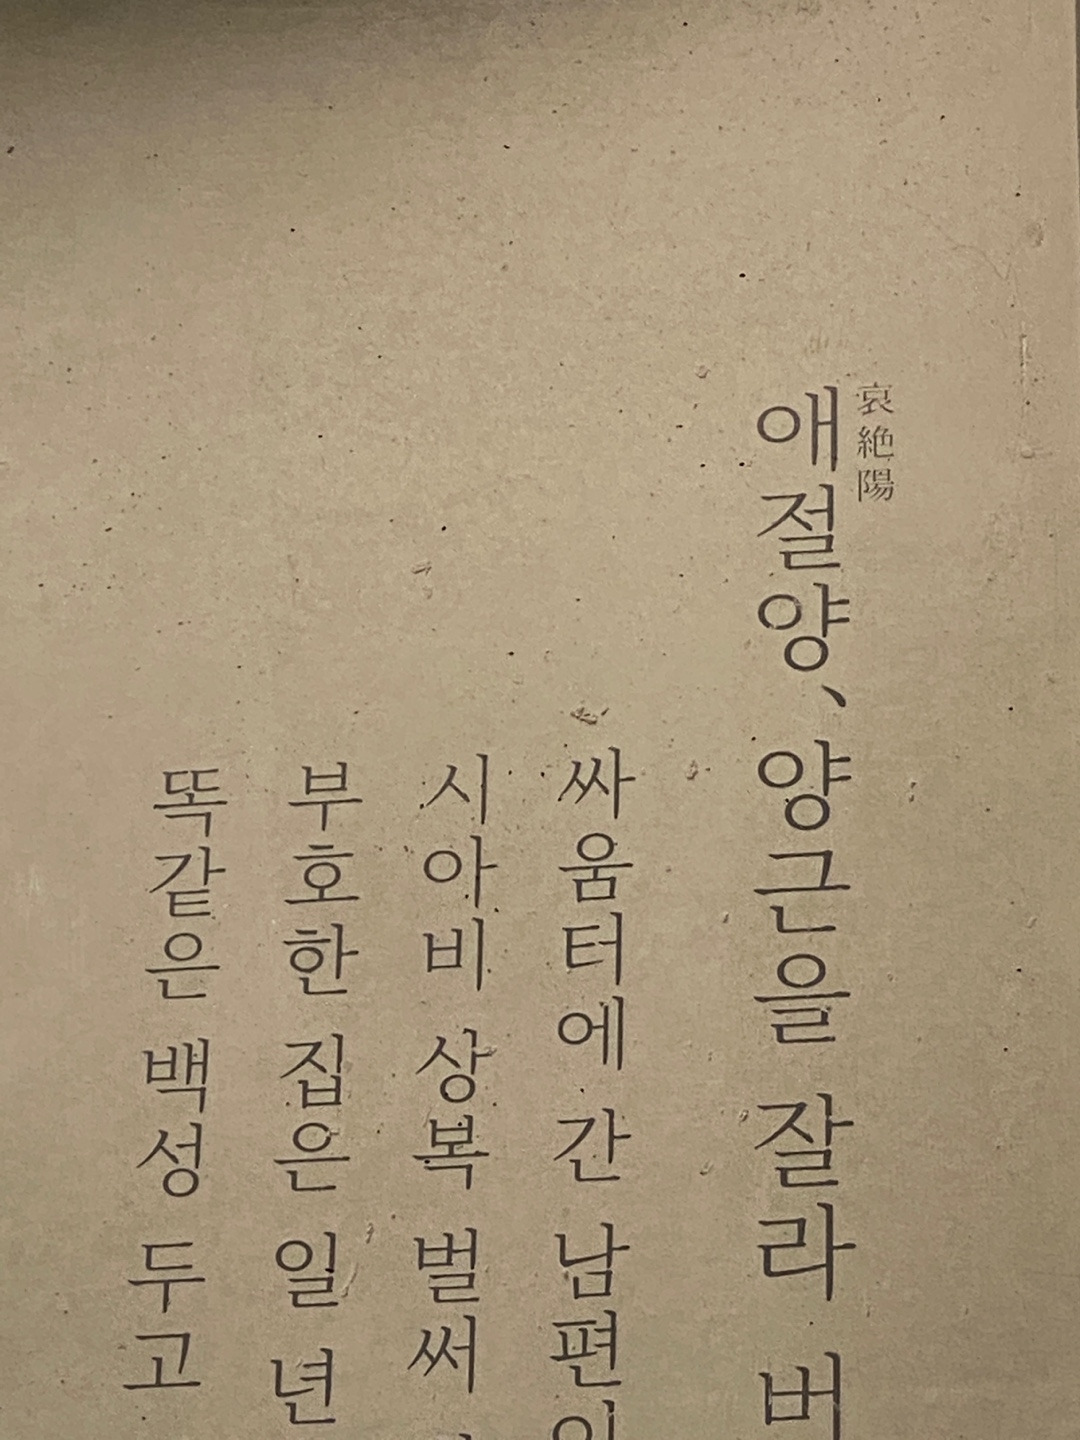 哀絶陽
애절양、양근을 잘라 버
싸움터에 간 남편
시아비 상복 벌써
부호한 집은 일 년
똑같은 백성 두고